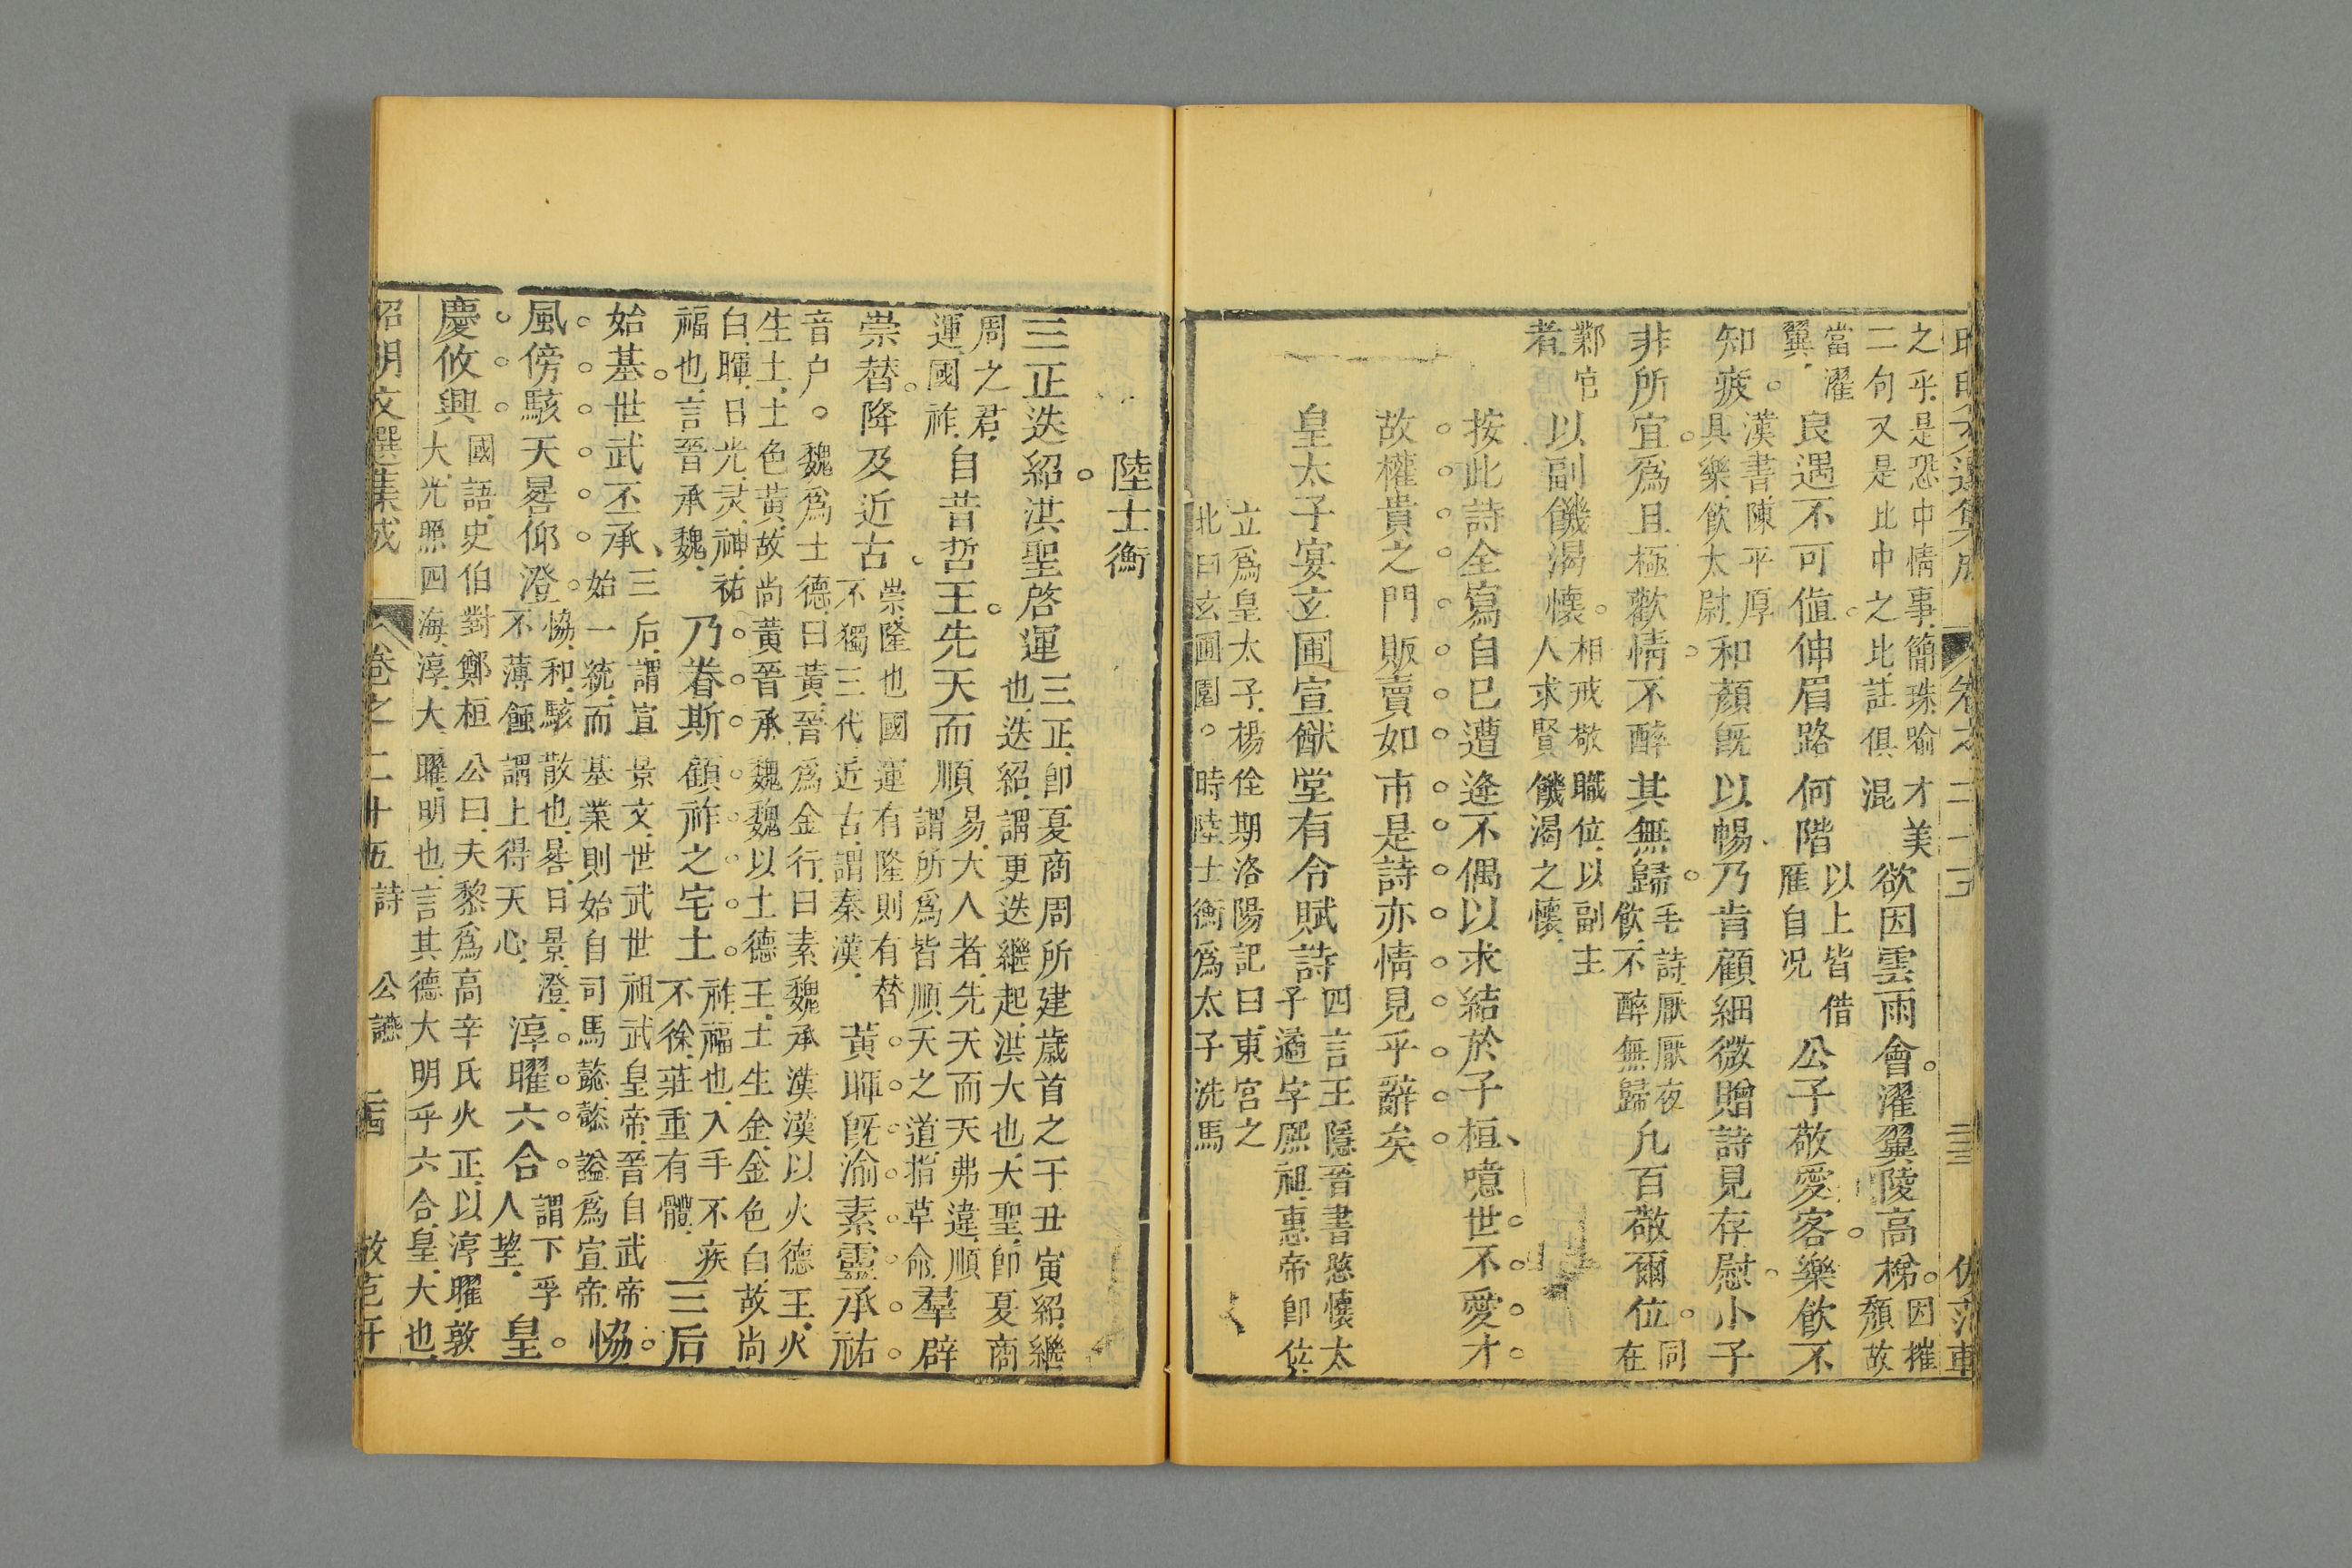 之乎是恐中情事簡珠喻才美
二句又是比中之比註俱混
欲因雲雨會濯翼陵高梯
因摧頹故
當濯翼
良遇不可值伸眉路何階
以上皆借雁自况
公子敬愛客樂飲不
知疲
漢書陳平厚具樂飲太尉
和顏既以暢乃肯顧細微贈詩見存慰小子
非所宜爲且極歡情不醉其無歸
毛詩厭厭夜飲不醉無歸
凢百敬爾位
同在
鄴官者
以副饑渴懷
相戒敬職位以副主人求賢饑渴之懷
按此詩全寫自巳遭逢不偶以求結於子桓噫世不愛才
故權貴之門販賣如市是詩亦情見乎辭矣
皇太子宴玄圃宣猷堂有令賦詩
四言王隱晉書愍懷太子遹字熈祖惠帝卽位
立爲皇太子楊佺期洛陽記曰東宮之
北曰玄圃園時陸士衡爲太子洗馬
陸士衡
三正迭紹洪聖啓運
三正卽夏商周所建歲首之子丑寅紹繼
也迭紹謂更迭繼起洪大也大聖卽夏商
周之君運國祚
自昔哲王先天而順
易大人者先天而天弗違順
謂所爲皆順天之道指革命
羣辟
崇替降及近古
崇隆也國運有隆則有替
不獨三代近古謂秦漢
黃暉旣渝素靈承祜
音户
魏爲士德曰黃晉爲金行曰素魏承漢漢以火德王火
生土土色黃故尚黃晉承魏魏以土德王土生金金色白故尚
白暉日光灵神祜福也言晉承魏
乃眷斯顧祚之宅土
祚福也入手不疾不徐莊重有體
三后
始基世武丕承
三后謂宣景文世武世祖武皇帝晉自武帝
始一統而基業則始自司馬懿懿謚爲宣帝
恊
風傍駭天晷仰澄
恊和駭散也晷日景澄
不薄蝕謂上得天心
淳曜六合
謂下孚人望
皇
慶攸興
國語史伯對鄭桓公曰夫黎爲高辛氏火正以淳曜敦
大光照四海淳大曜明也言其德大明乎六合皇大也
昭明文選集成
卷之二十五
詩
公讌